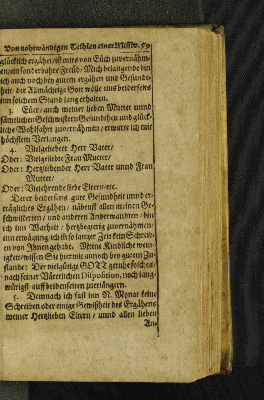 Von nohtwändigen Techlen einer Missiv. 59
glücklich ergähet/ist mirs von Eüch zuvernäh-
men/ein sonderbahre Freüd/ Mich belangende bin
ich auch noch bey gutem ergähen und Gesunde-
heit/ der Allmächtige Gott wölle uns beiderseits
inn solchem Stand lang erhalten.
3. Euer/ auch meiner lieben Mutter unnd
sämetlichen Geschwistern Gesundtheit und glück-
liche Wohlfahrt zuvernähmen/ erwarte ich mit
höchstem Verlangen.
4. Vielgeliebter Herr Vater/
Oder: Vielgeliebte Frau Mutter/
Oder: Hertzliebender Herr Vater unnd Frau
Mutter/
Oder: Vielehrende liebe Eltern/ etc.
Derer beiderseits gute Gesundheit unnd er-
trägliches Ergähen/ näbenst allen meinen Ge-
schwisterten/ und anderen Anverwandten/ bin
ich inn Warheit/ hertzbegierig zuvernähmen/
inn erwägung/ ich ist so langer Zeit kein Schrei-
ben von Ihnen gehabt. Meine Kindliche wein-
igkeit wissen Sie hiermit annoch bey gutem Zu-
stande: Der vielgütige GOTT geruhe solches/
nach seiner Väterlichen Disposition, noch lang-
würigst auff beidenseiten zuerlängern.
5. Demnach ich fast inn N. Monat keine
Schreiben oder einige Gewißheit des Ergähens
meiner Hertzlieben Eltern/ unnd allen lieben
An-